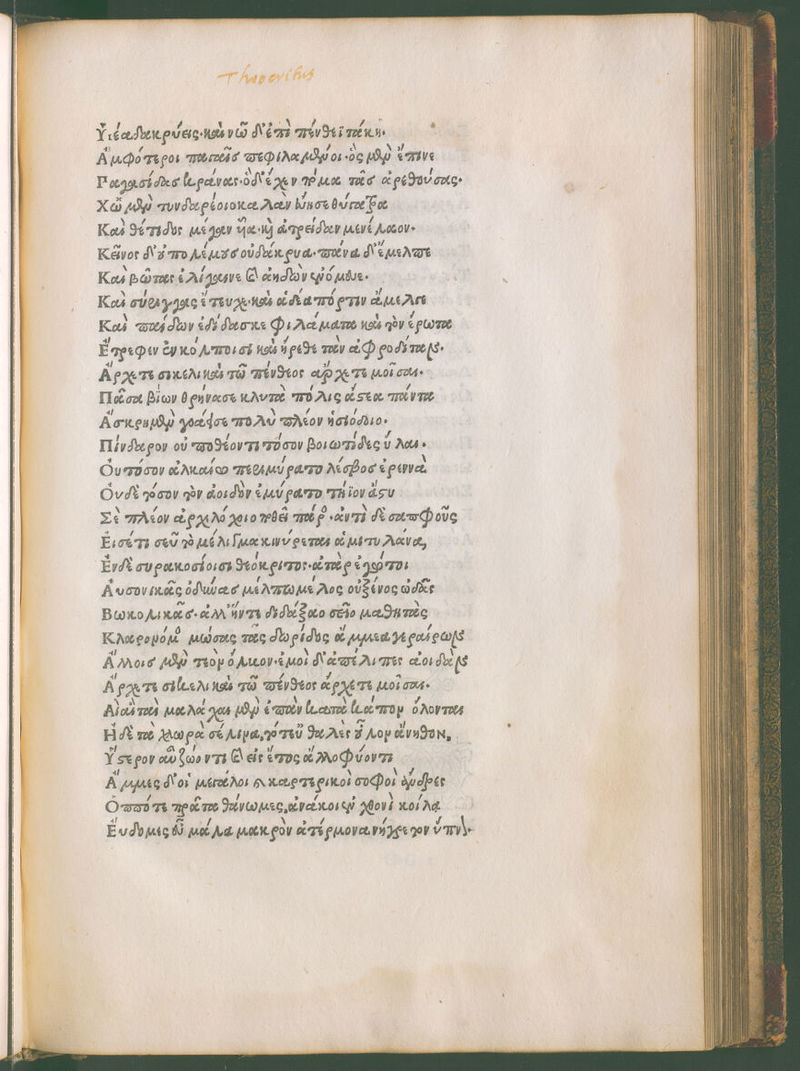 Ὑιέα δακρύεις· καὶ νῶ δ᾽ ἐπὶ πένθεϊ τάκῃ.
Ἀμφότεροι παγαῖς πεφιλαμένοι· ὃς μὲν ἔπινε
Παγασίδας κράνας· ὁ δ᾽ ἔχεν πόμα τᾶς ἀρεθούσας·
Χὢ μὲν τυνδαρέοιο καλὰν θύγατρα
Καὶ θέτιδος μέγαν ὗα· καὶ ἀτρείδαν μενέλαον·
Κεῖνος δ᾽ οὐ πολέμους οὐ δάκρυα· πᾶνα δ᾽ ἔμελπε
Καὶ βώτας ἐλίγαινε καὶ ἀείδων ἐνόμευε·
Καὶ σύριγγας ἔτευχε· καὶ ἁδέα πόρτιν ἄμελγε
Καὶ παίδων ἐδίδασκε φιλάματα καὶ τὸν ἔρωτα
Ἔτρεφεν ἐν κόλποισι καὶ ἤρεθε τὰν ἀφροδίταν.
Ἄρχετε σικελικαὶ τῶ πένθεος ἄρχετε μοῖσαι.
Πᾶσα βίων θρήνασε κλυτὰ πόλις ἄστεα πάντα
Ἄσκρη μὲν γοάει σε πολὺ πλέον ἡσιόδοιο·
Πίνδαρον οὐ ποθέοντι τόσον βοιωτίδες ὗλαι·
Οὐ τόσον ἀλκαίω περιμύρατο λέσβος ἐρεννὰ
Οὐδὲ τόσον τὸν ἀοιδὸν ἐμύρατο τήϊον ἄστυ
Σὲ πλέον ἀρχιλόχοιο ποθεῖ πάρος· ἀντὶ δὲ σαπφοῦς
Εἰσέτι σεῦ τὸ μέλισμα κινύρεται ἁ μιτυλάνα,
Ἐνδὲ συρακοσίοισι θεόκριτος· ἀτὰρ ἐγώ τοι
Αὐσονικᾶς ὀδύνας μέλπω μέλος οὐ ξένος ὠδᾶς
Βωκολικᾶς· ἀλλ᾽ ἥντε διδάξαο σεῖο μαθητὰς
Κλαρονόμος μώσας τᾶς δωρίδος ἄμμε γεραίρων
Ἄλλοις μὲν τεὸν ὄλβον· ἐμοὶ δ᾽ ἀπέλιπες ἀοιδὰν
Ἄρχετε σικελικαὶ τῶ πένθεος ἄρχετε μοῖσαι.
Αἲ αἲ ταὶ μαλάχαι μὲν ἐπὰν κατὰ κᾶπον ὄλονται
Ἠδὲ τὰ χλωρὰ σέλινα, τό τ᾽ εὐθαλὲς οὖλον ἄνηθον,
Ὕστερον αὖ ζώοντι καὶ εἰς ἔτος ἄλλο φύοντι
Ἄμμες δ᾽ οἱ μεγάλοι καὶ καρτερικοὶ σοφοὶ ἄνδρες
Ὁππότε πρᾶτα θάνωμες, ἀνάκοοι ἐν χθονὶ κοίλα
Εὕδομες εὖ μάλα μακρὸν ἀτέρμονα νήγρετον ὕπνον.